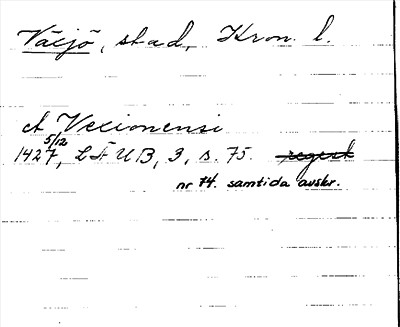 Växjö, stad, Kron. l.
et Vexionensi
5/12
1427, LFUB, 3, s. 75. regest
nr 74. samtida avskr.